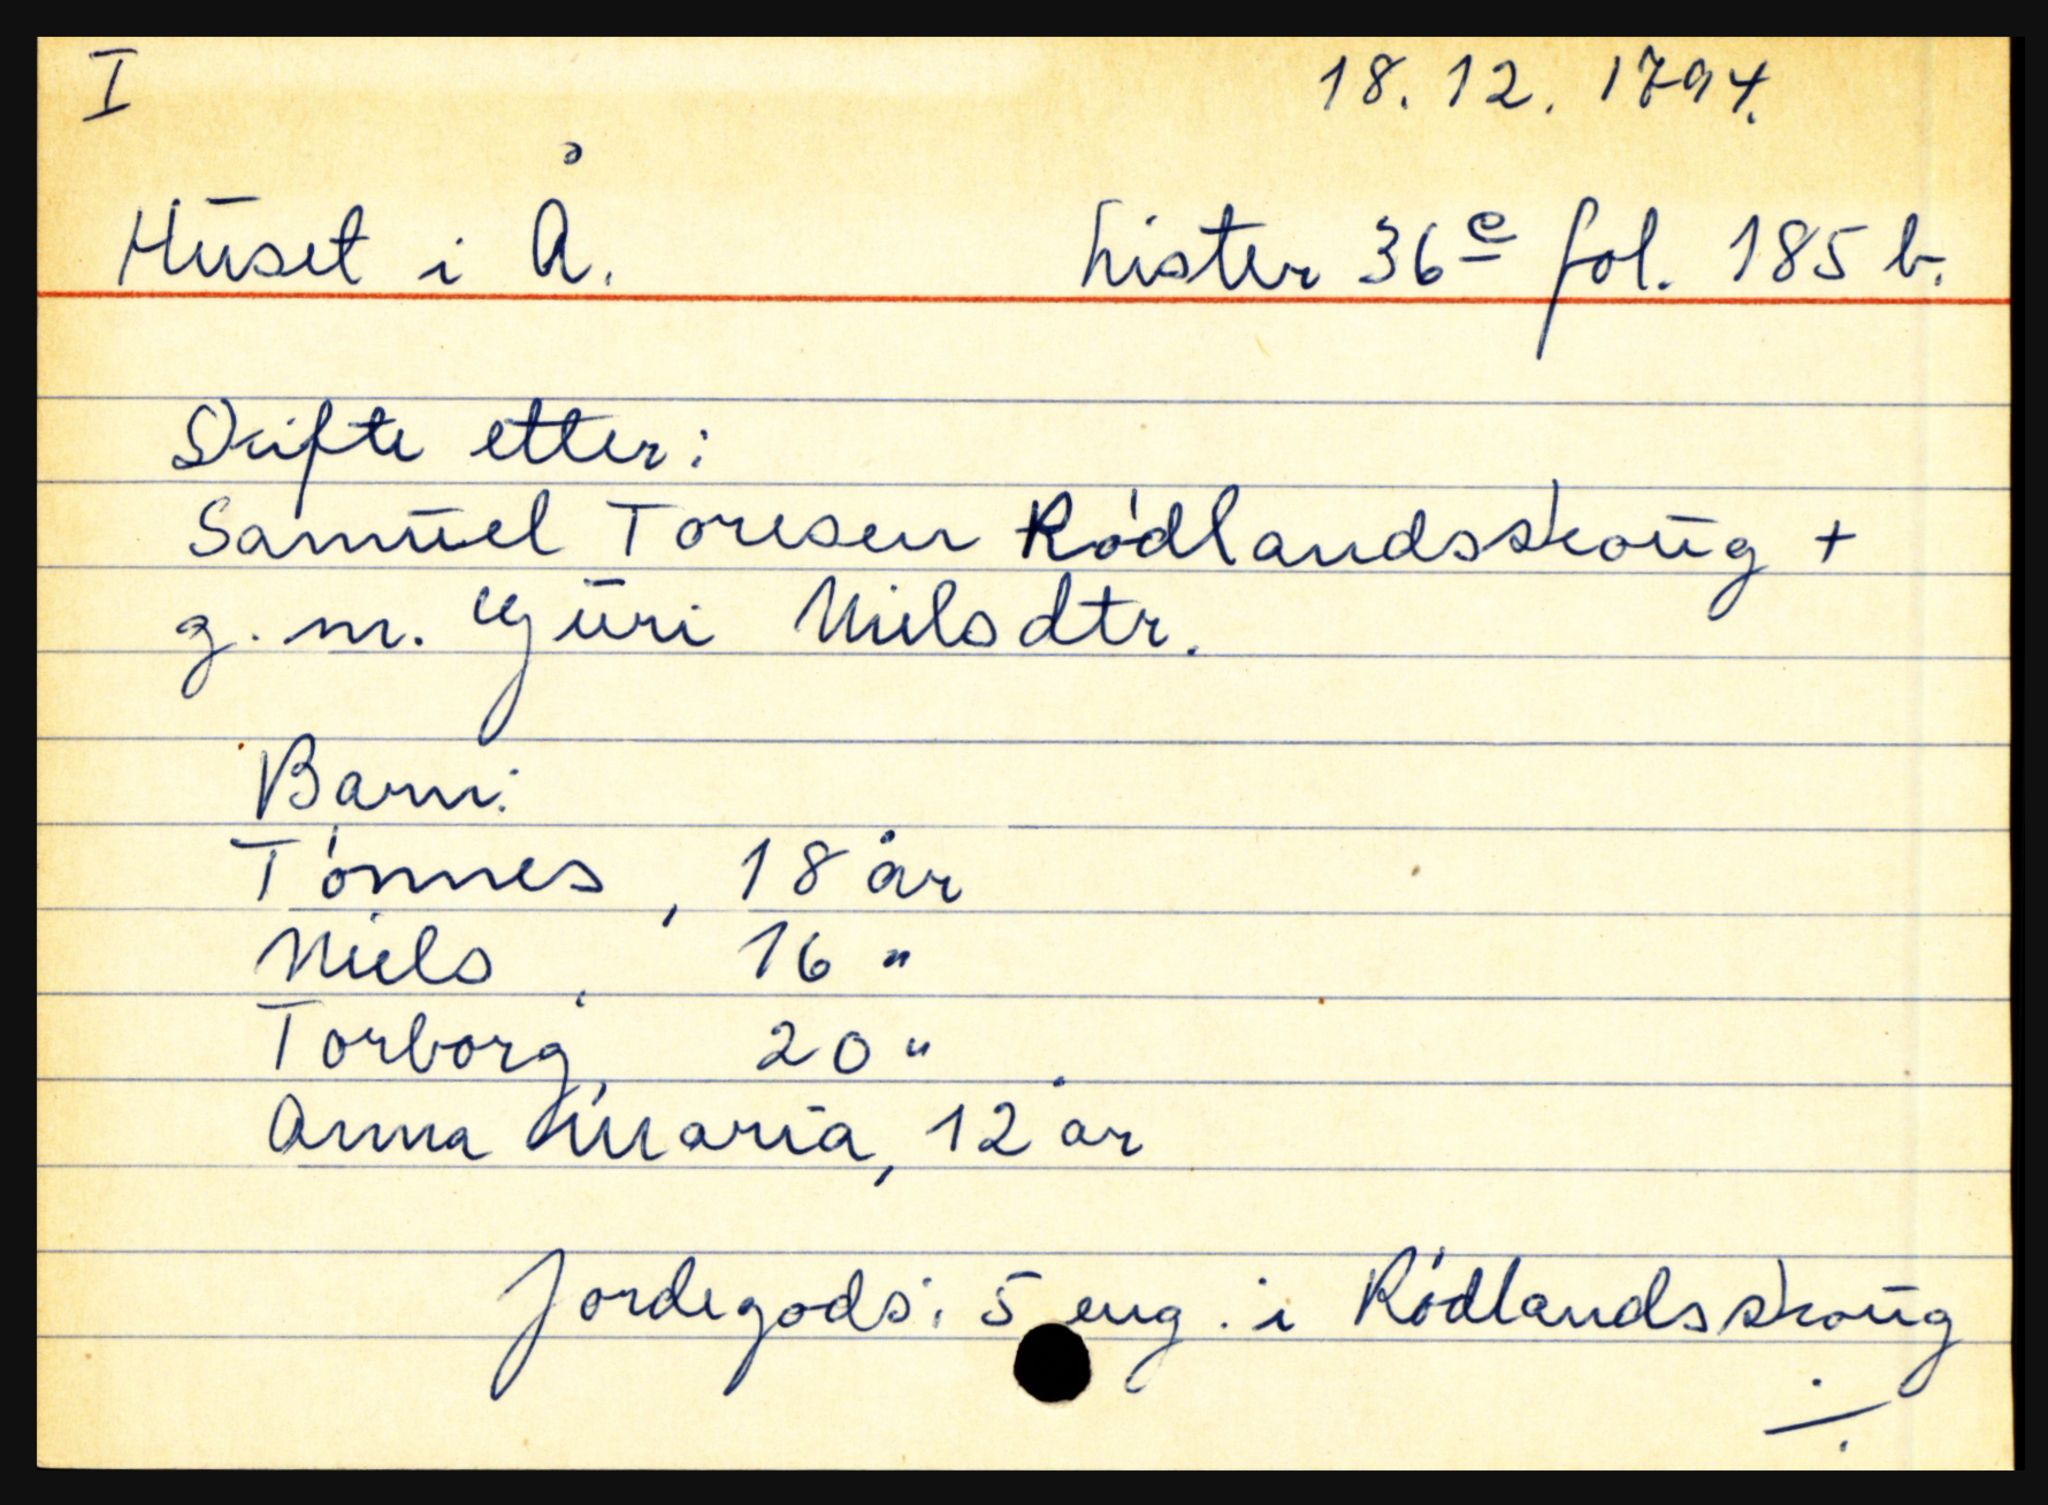 I 18.12.1794.
Huset i Å. Lister 36e fol. 185 b.
Skifte etter:
Samuel Toresen Rødlandsskoug +
g. m. Gjuri Nielsdtr.
Barn:
Tønnes, 18 år
Niels, 16 "
Torborg, 20 "
Anna Maria, 12 år
Jordegods: 5 eng. i Rødlandsskoug